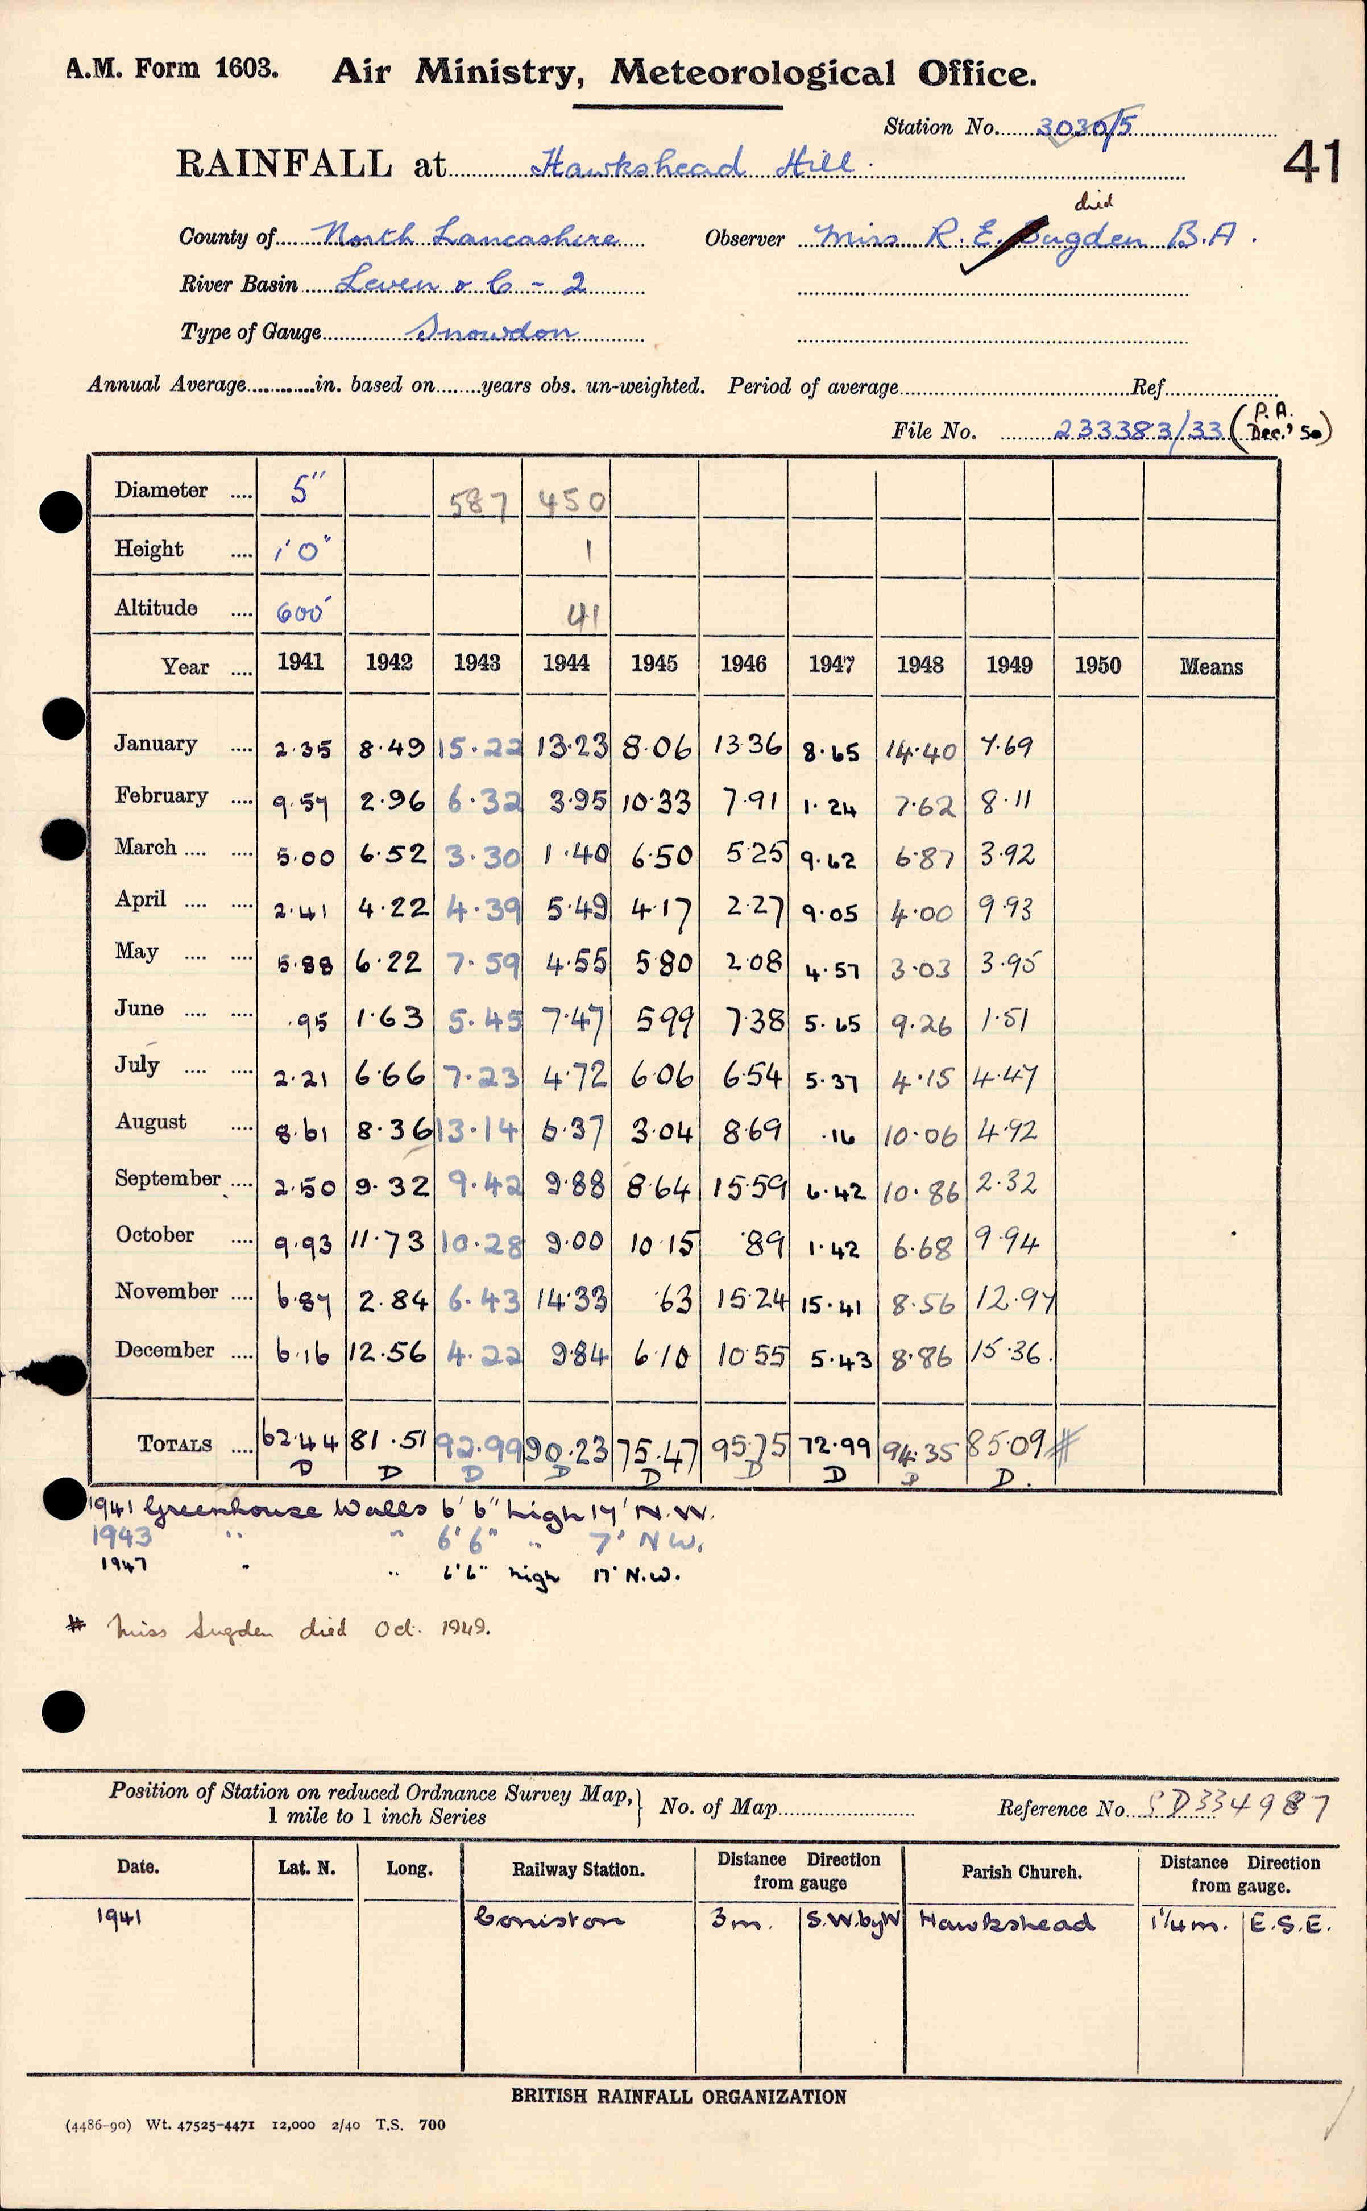 A.M. Form 1603. Air Ministry, Meteorological Office.
Station No. 3030/5
41
RAINFALL at Hawkshead Hill.
died
County of North Lancashire Observer Miss R. E. Sugden B.A.
River Basin Leven & C - 2
Type of Gauge Snowdon
Annual Average in. based on years obs. un-weighted. Period of average Ref.
File No. 233383/33 (P.A. Dec.' 50)
Diameter 5" 587 450
Height 1'0" 1
Altitude 600' 41
Year 1941 1942 1943 1944 1945 1946 1947 1948 1949 1950 Means
January 2.35 8.49 15.22 13.23 8.06 13.36 8.65 14.40 7.69
February 9.57 2.96 6.32 3.95 10.33 7.91 1.24 7.62 8.11
March 5.00 6.52 3.30 1.40 6.50 5.25 9.62 6.87 3.92
April 2.41 4.22 4.39 5.49 4.17 2.27 9.05 4.00 9.93
May 5.88 6.22 7.59 4.55 5.80 2.08 4.57 3.03 3.95
June .95 1.63 5.45 7.47 5.99 7.38 5.65 9.26 1.51
July 2.21 6.66 7.23 4.72 6.06 6.54 5.37 4.15 4.47
August 8.61 8.36 13.14 6.37 3.04 8.69 .16 10.06 4.92
September 2.50 9.32 9.42 9.88 8.64 15.59 6.42 10.86 2.32
October 9.93 11.73 10.28 9.00 10.15 .89 1.42 6.68 9.94
November 6.87 2.84 6.43 14.33 .63 15.24 15.41 8.56 12.97
December 6.16 12.56 4.22 9.84 6.10 10.55 5.43 8.86 15.36.
TOTALS 62.44 81.51 92.99 90.23 75.47 95.75 72.99 94.35 85.09 #
D D D D D D D D D.
1941 Greenhouse Walls 6' 6" high 17' N.W.
1943 " " 6'6" " 7' N.W.
1947 " " 6'6" high 17' N.W.
# Miss Sugden died Oct. 1949.
Position of Station on reduced Ordnance Survey Map, 1 mile to 1 inch Series } No. of Map Reference No. SD334987
Date. Lat. N. Long. Railway Station. Distance Direction from gauge Parish Church. Distance Direction from gauge.
1941 Coniston 3m. S.W.byW Hawkshead 1¼m. E.S.E.
BRITISH RAINFALL ORGANIZATION
(4486-90) Wt. 47525-4471 12,000 2/40 T.S. 700